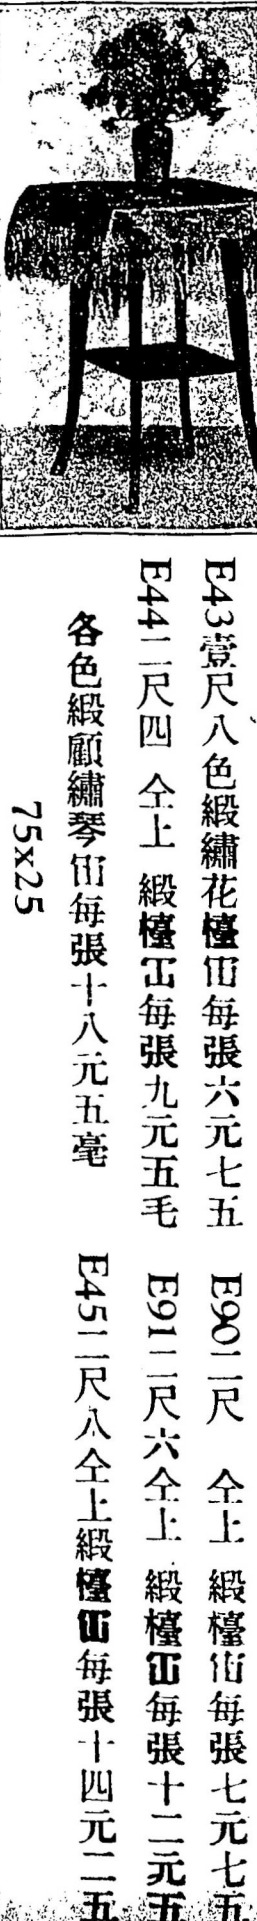 E43壹尺八色緞繡花檯 每張六元七五
E44二尺四 仝上 緞檯 每張九元五毛
各色緞顧繡琴 每張十八元五毫
75x25
E90二尺 仝上 緞檯 每張七元七五
E91二尺六仝上 緞檯 每張十二元五
E45二尺八仝上緞檯 每張十四元二五